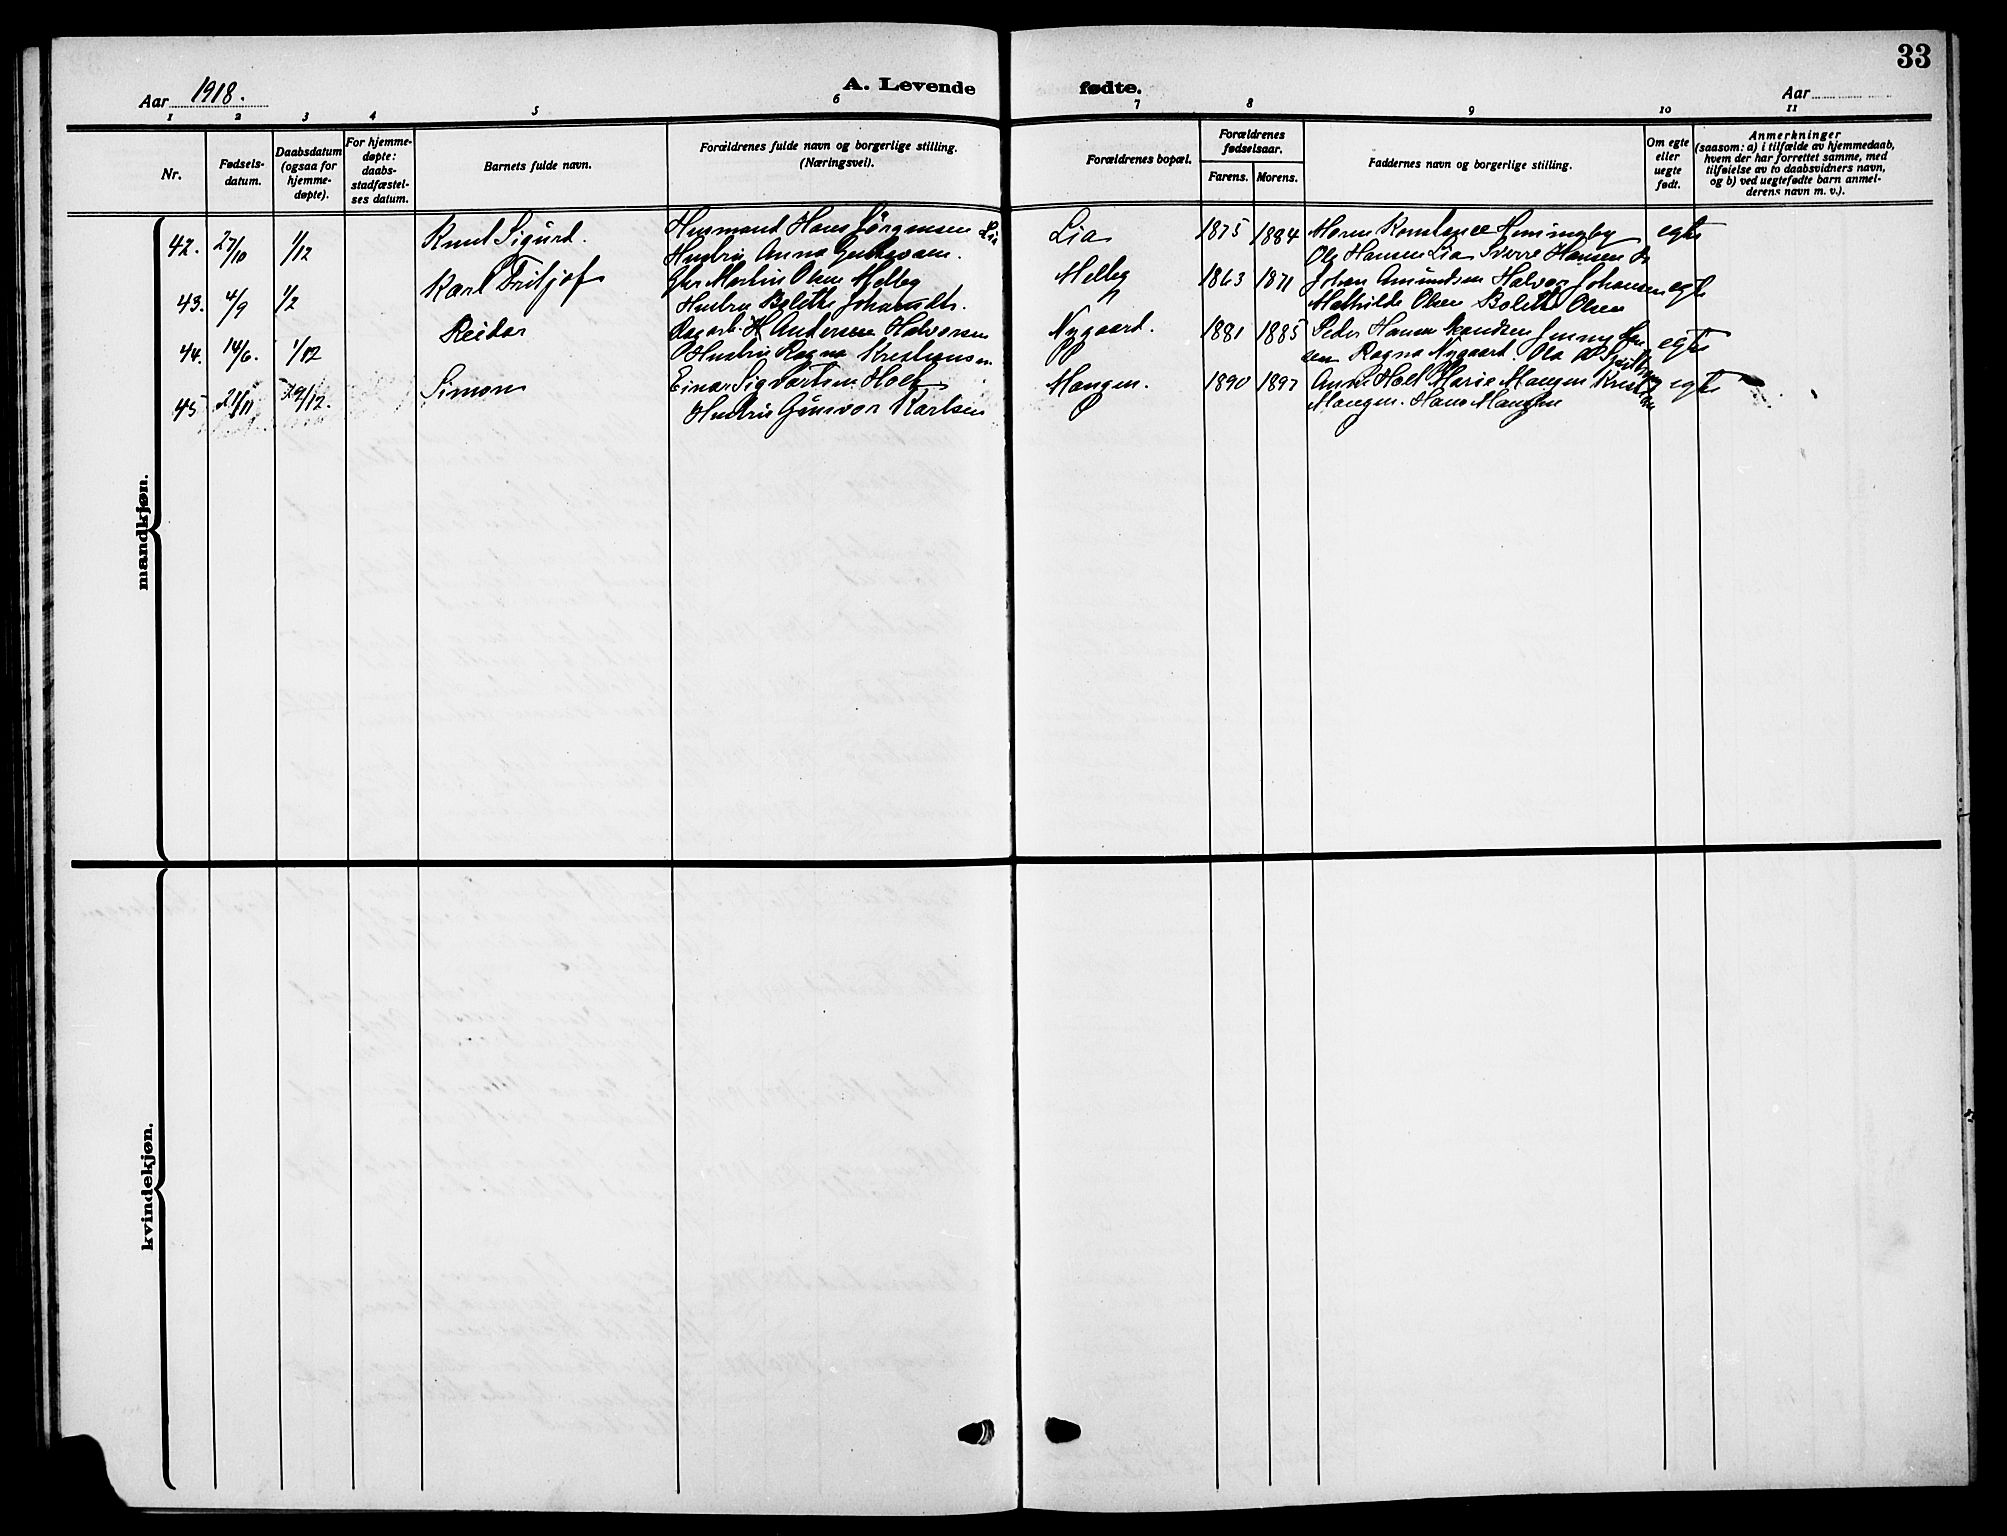 33
Aar 1918.
A. Levende fødte.
Aar
1 2 3 4 5 6 7 8 9 10 11
Nr.
Fødsels-
datum.
Daabsdatum
(ogsaa for
hjemme-
døpte).
For hjemme-
døpte:
daabs-
stadfæstel-
ses datum.
Barnets fulde navn.
Forældrenes fulde navn og borgerlige stilling.
(Næringsvei).
Forældrenes bopæl.
Forældrenes
fødselsaar.
Farens. Morens.
Faddernes navn og borgerlige stilling.
Om egte
eller
uegte
født.
Anmerkninger
(saasom: a) i tilfælde av hjemmedaab,
hvem der har forrettet samme, med
tilføielse av to daabsvidners navn,
og b) ved uegtefødte barn anmel-
derens navn m. v.).
mandkjøn.
42. 27/10 1/12 Knut Sigurd. Husmand Hans Jørgensen Lia
Hustru Anna
Lia 1875 1884 Maren Konstance Hemingby egte
Ole Hansen Lia Sverre Hansen
43. 4/9 1/2 Karl Fritjof Martin Olsen Melby
Hustru Bolette
Melby 1863 1871 Johan Amundsen Halvor Johansen egte
Mathilde Olsen Bolette Olsen
44. 14/6. 1/12 Reidar H. Andersen Halvorsen
Hustru Ragna Kristiansen
Nygaard. 1881 1885 Peder Hansen Jenny Han
sen Ragna Nygaard. Ola egte
45 /11 29/12. Simon Einar Sigvartsen Holt
Hustru Gunvor Karlsen
Mangen. 1890 1897 Anne Holt Marie Mangen egte
Mangen. Hans Mangen
kvindekjøn.